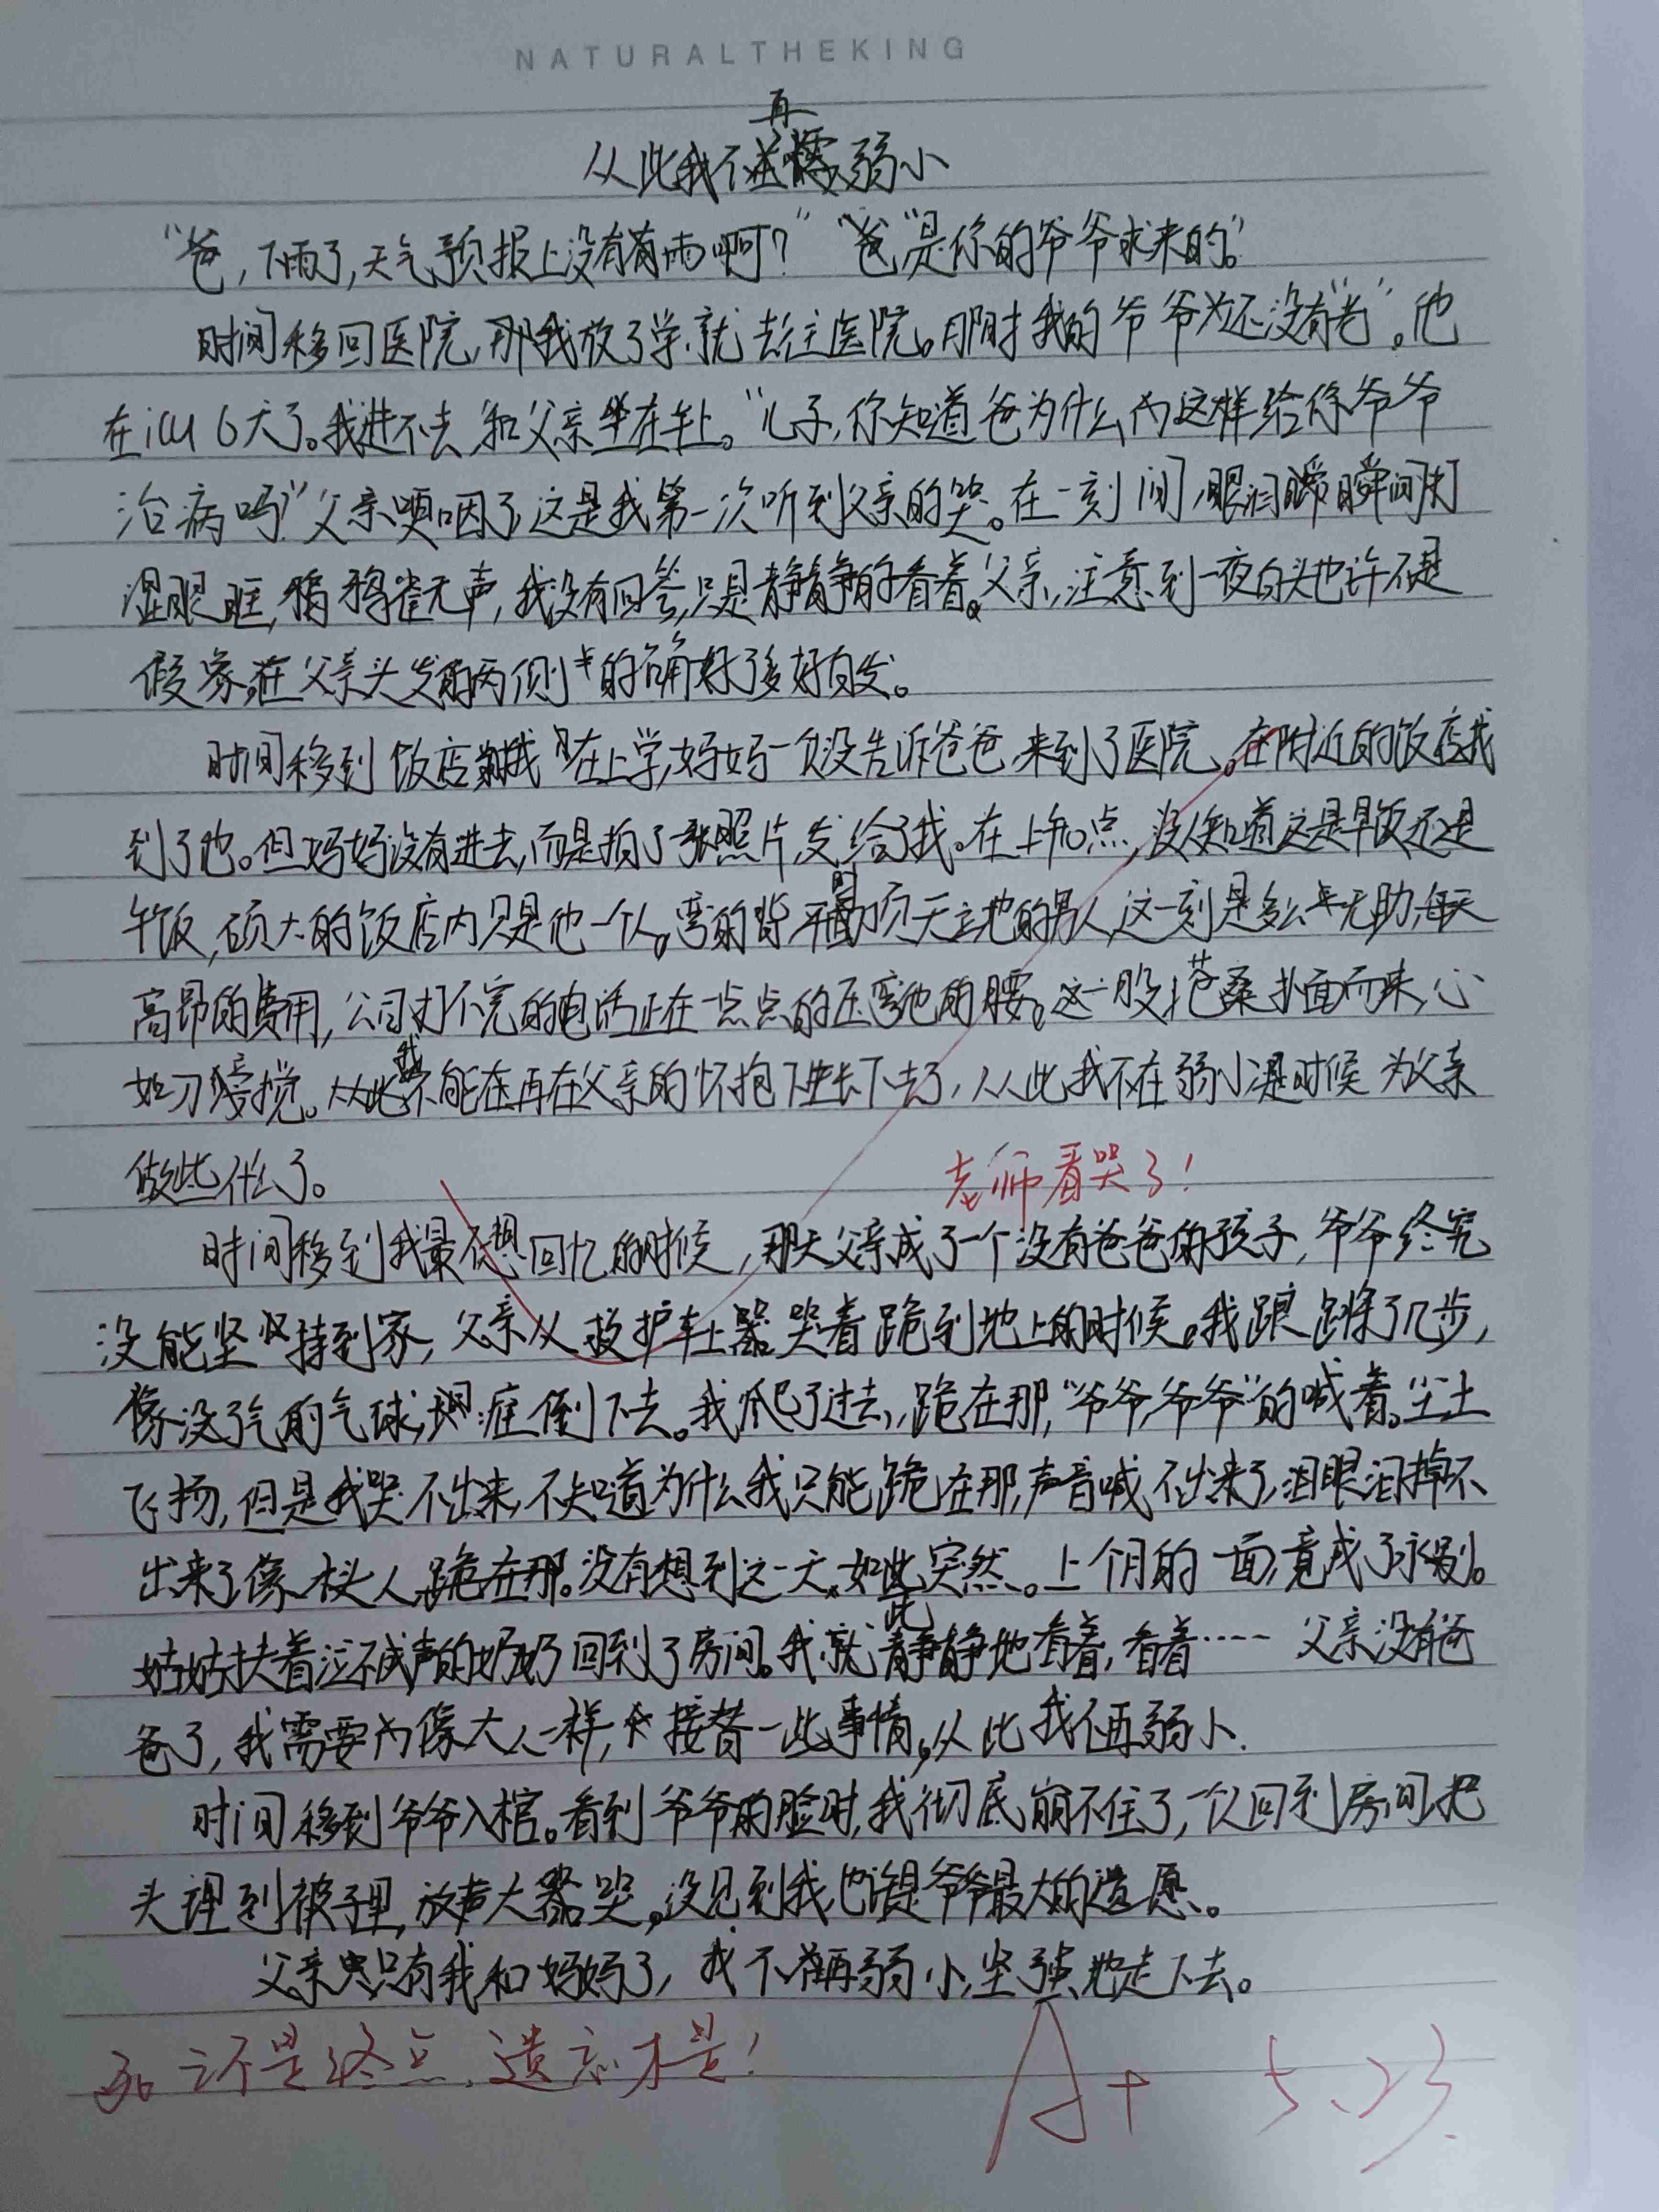 NATURALTHEKING
再
从此我不在弱小
“爸,下雨了,天气预报上没有雨啊?”“是你的爷爷求来的。”
时间移回医院,那我放了学,就去往医院。那时我的爷爷还没有“老”。他
在icu 6天了。我进不去,和父亲坐在车上。“儿子,你知道爸为什么这样给你爷爷
治病吗?”父亲哽咽了,这是我第一次听到父亲的哭。在一刻间,眼泪瞬间打
湿眼眶,鸦雀无声,我没有回答,只是静静的看着。父亲,注意到一夜白头也许不是
假象,在父亲头发的两侧的确好了多好白发。
时间移到饭店,我在上学,妈妈一 没告诉爸爸,来到了医院。在附近的饭店找
到了他。但妈妈没有进去,而是拍了张照片,发给了我。在上午10点,没人知道这是早饭还是
午饭,硕大的饭店内只是他一个人。弯的背,平时顶天立地的男人,这一刻是多么无助,每天
高昂的费用,公司打不完的电话正在一点点的压弯他的腰。这一股沧桑扑面而来,心
如刀搅。从此我不能在再在父亲的怀抱下生长下去了,从此我不在弱小,是时候为父亲
做些什么了。
老师看哭了!
时间移到我最不想回忆的时候,那天父亲成了一个没有爸爸的孩子,爷爷终究
没能坚持到家,父亲从救护车上哭着跪到地上的时候。我踉跄了几步,
像没了气的气球,瘫倒下去。我爬了过去,跪在那,“爷爷,爷爷”的喊着。尘土
飞扬,但是我哭不出来,不知道为什么我只能跪在那,声音喊不出来了,眼泪掉不
出来了像木头人,跪在那。没有想到这一天,如此突然。上个月的一面,竟成了永别。
姑姑扶着泣不成声的奶奶回到了房间。我就静静地看着,看着…… 父亲没有爸
爸了,我需要像大人一样,接替一些事情,从此我不再弱小.
时间移到爷爷入棺。看到爷爷的脸时,我彻底崩不住了,一个人回到房间,把
头埋到被子里,放声大哭。没见到我,也许是爷爷最大的遗愿。
父亲只有我和妈妈了,我不再弱小,坚强地走下去。
死亡不是终点,遗忘才是!
A+ 5.23